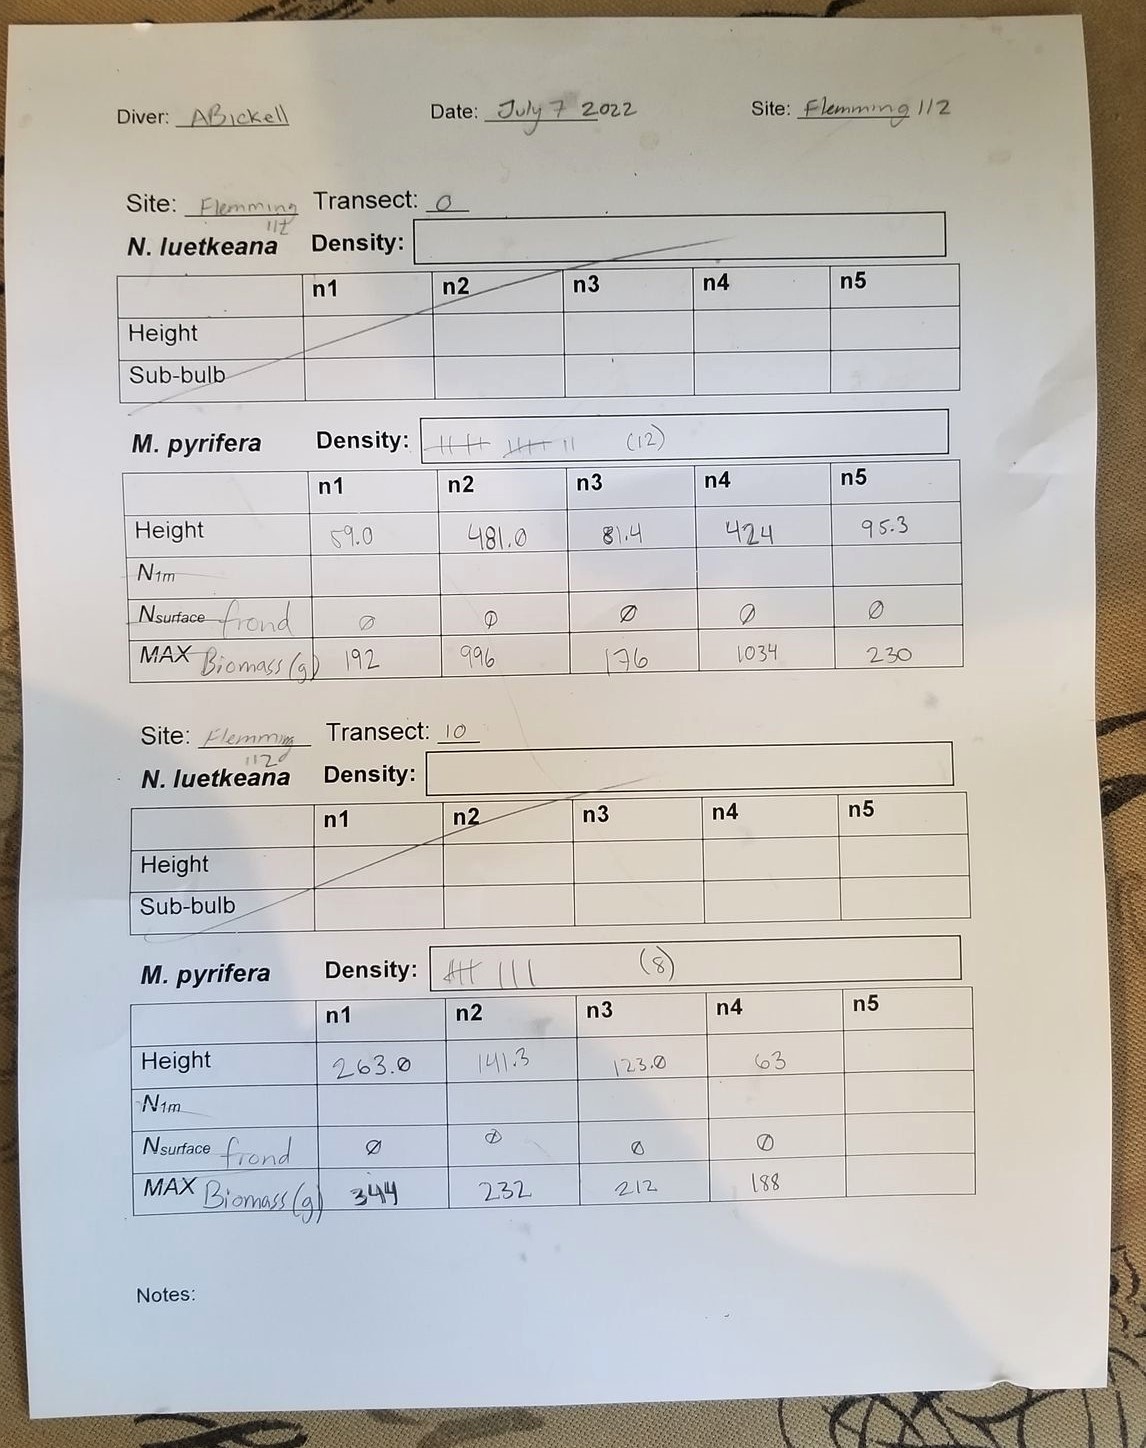 Diver: ABickell Date: July 7 2022 Site: Flemming 112
Site: Flemming Transect: 0
112
N. luetkeana Density:
n1 n2 n3 n4 n5
Height
Sub-bulb
M. pyrifera Density: (12)
n1 n2 n3 n4 n5
Height 59.0 481.0 81.4 424 95.3
N1m
Nsurface frond Ø Ø Ø Ø Ø
MAX Biomass (g) 192 996 176 1034 230
Site: Flemming Transect: 10
112
N. luetkeana Density:
n1 n2 n3 n4 n5
Height
Sub-bulb
M. pyrifera Density: (8)
n1 n2 n3 n4 n5
Height 263.0 141.3 123.0 63
N1m
Nsurface frond Ø Ø Ø Ø
MAX Biomass (g) 344 232 212 188
Notes: